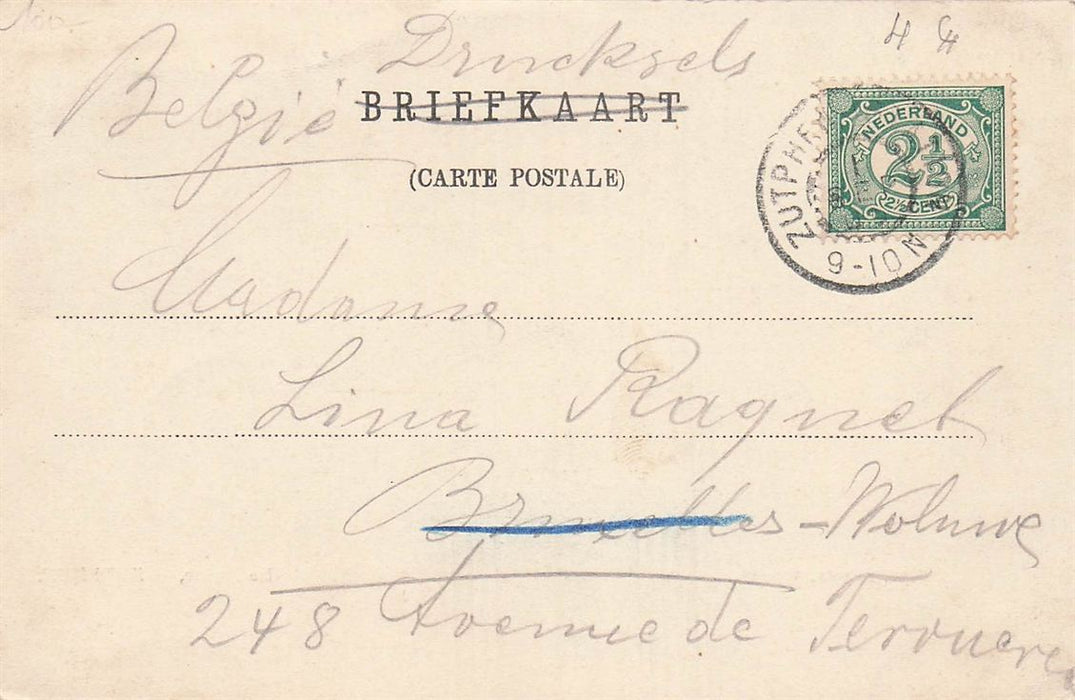 Drucksels
België
BRIEFKAART
(CARTE POSTALE)
NEDERLAND
2½
2½ CENT
ZUTPHE
9-10 N
Madame
Lina Ragnet
Bruxelles-Woluwe
248 Avenue de Tervueren